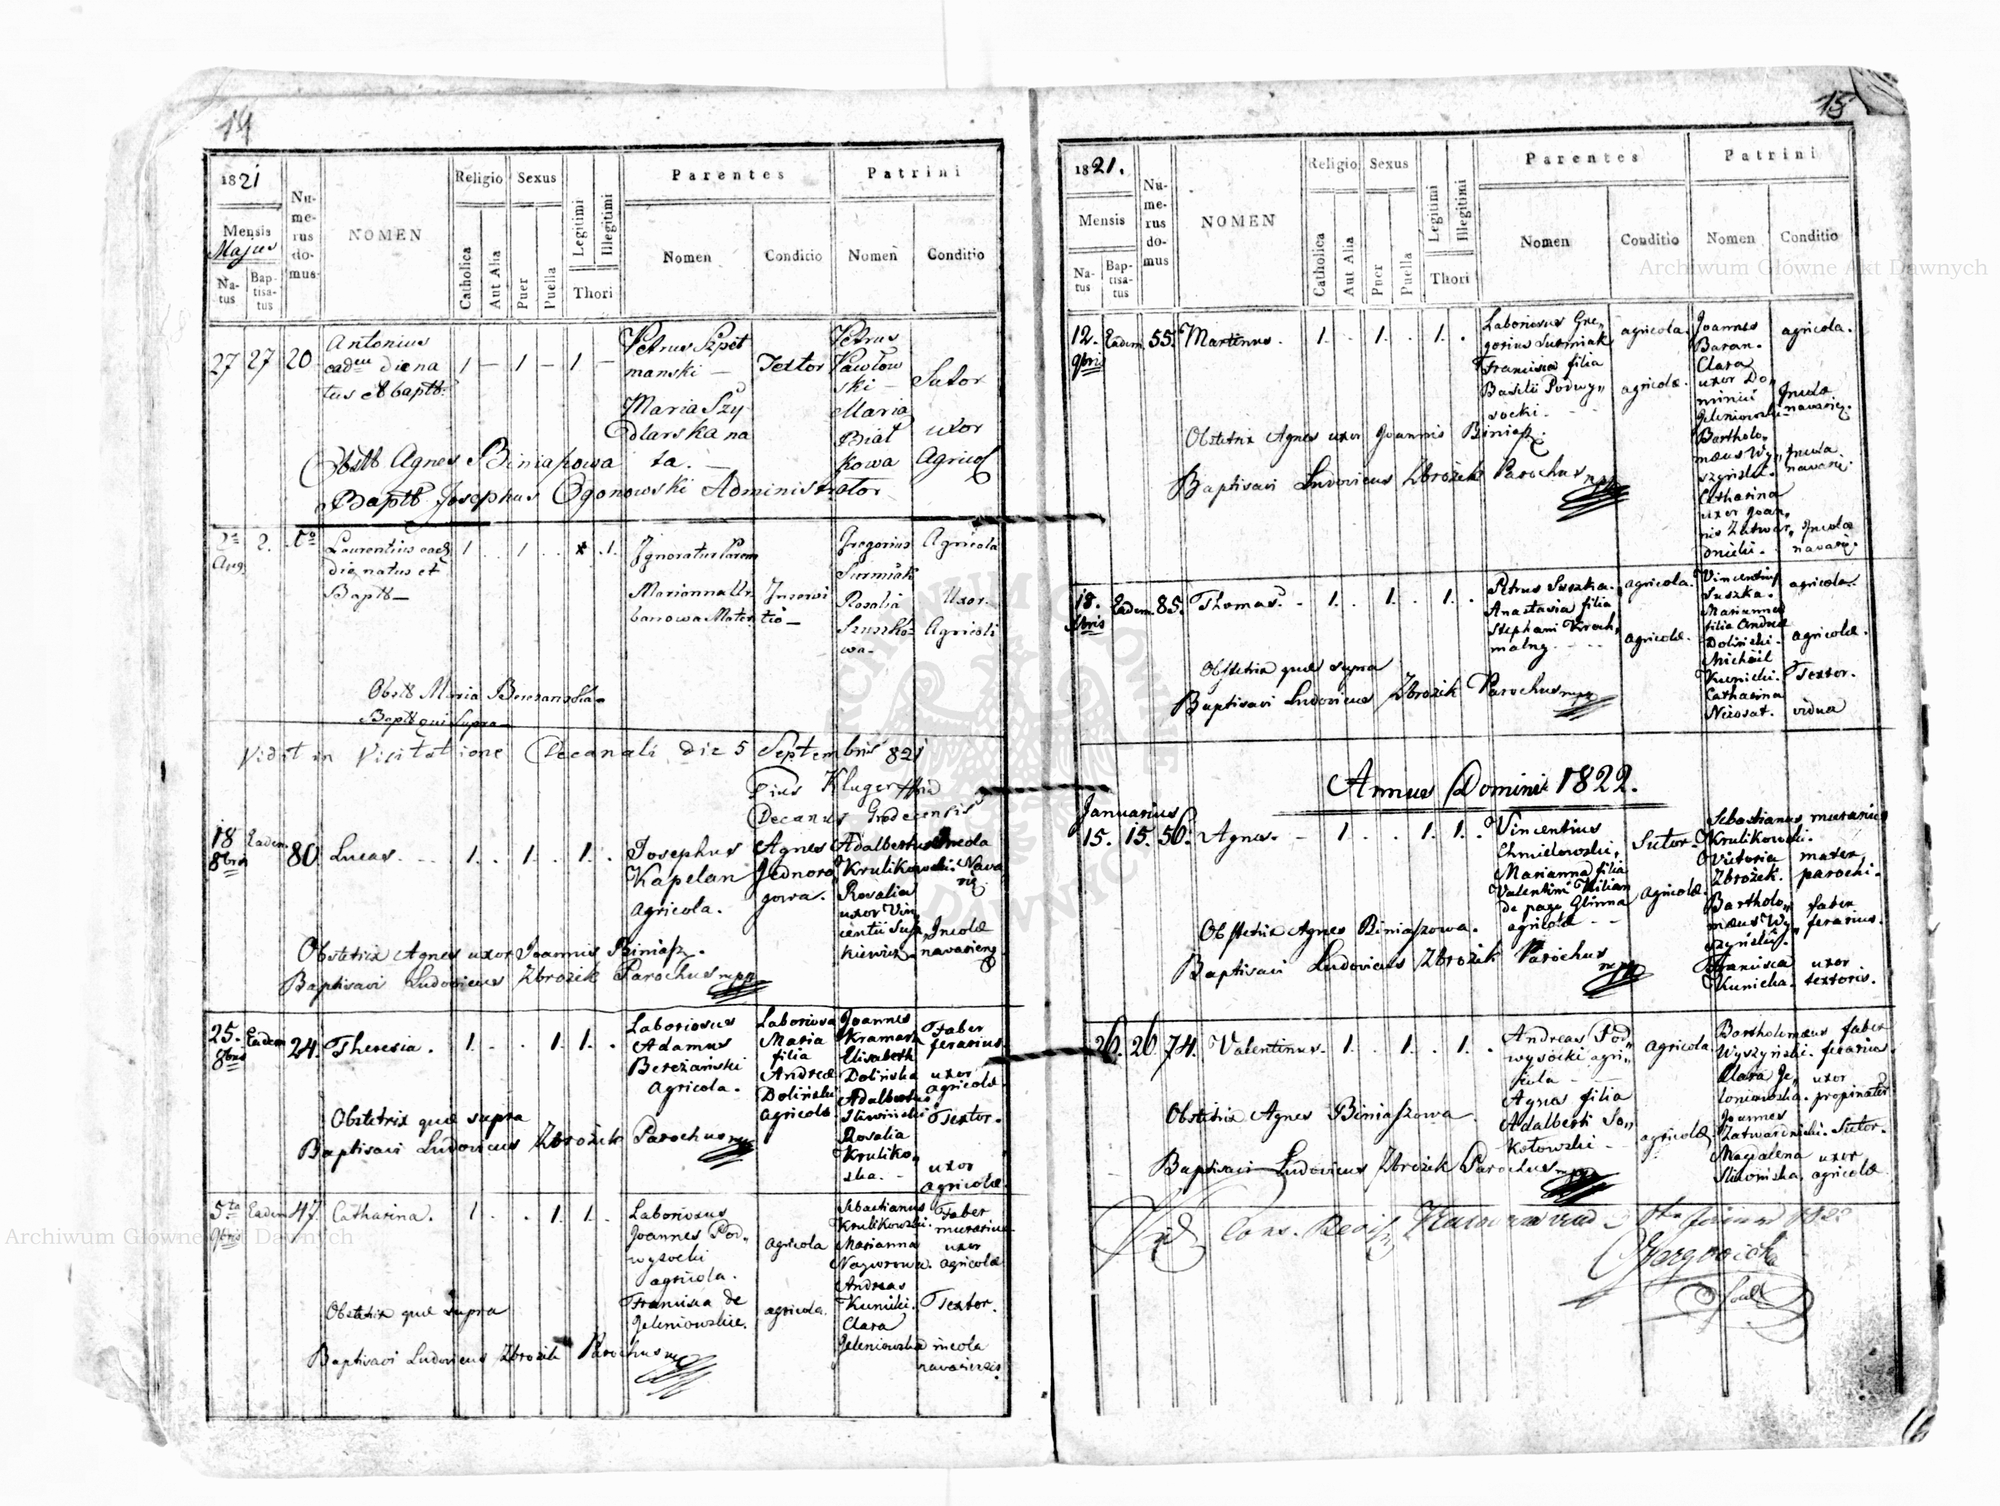 14
1821
Mensis
Majus
Natus
Baptisatus
Numerus domus
NOMEN
Religio
Catholica
Aut Alia
Sexus
Puer
Puella
Legitimi
Illegitimi
Thori
Parentes
Nomen
Conditio
Patrini
Nomen
Conditio
27 27 20
Antonius
die na
tus et bapt
1 — 1 — 1 —
Petrus Szpet
manski —
Textor
Maria Szy
dlarska na
ta. —
Petrus
Pawlow
ski —
Sutor
Maria
Biał
kowa
uxor
Agricol
Obst Agnes Biniaszowa
Bapt Josephus Ogonowski Administrator
2
Aug.
2.
Laurentius
die natus et
Bapt —
1 . 1 . . 1.
Ignoratur
Marianna Ur
banowa Mater
Gregorius
Surmiak
Agricola
Rosalia
Uxor.
Agricoli
wa.
Obst Maria Berezanska
Bapt qui supra
Vidit in Visitatione Decanali die 5 Septembris 821
Pius Kluger
Decanus Grodecensis
18
8bris
Eadem
80
Lucas.
1. . 1. . 1. .
Josephus
Kapelan
agricola.
Agnes
Jednoro
gowa.
Adalbertus
Krulikowski.
Incola
Nava
Rosalia
uxor Vin
centii
kiewicz.
Incolæ
navariens
Obstetrix Agnes uxor Joannis Biniasz.
Baptisavi Ludovicus Zbrożek Parochus mpp
25.
8bris
Eadem
24.
Theresia.
1. . . 1. 1. .
Laboriosus
Adamus
Bereżański
agricola.
Laboriosa
Maria
filia
Andreæ
Doliński
agricolæ.
Joannes
Kramarz
Elisabeth
Dolińska
Adalbertus
Sliwiński
Rosalia
Kruliko„
ska. -
Faber
ferarius.
uxor
agricolæ
Textor.
uxor
agricolæ.
Obstetrix quæ supra
Baptisavi Ludovicus Zbrożek Parochus mpp
5ta
9bris
Eadem
47
Catharina.
1. . . 1. 1. .
Laboriosus
Joannes Pod„
wysocki
agricola.
agricola
Francisca de
Jeleniowskie.
agricola.
Sebastianus
Krulikowski.
Marianna
Andreas
Kunicki.
Clara
Jeleniowska
Faber
murarius
uxor
agricolæ
Textor.
incola
navariensis.
Obstetrix quæ supra
Baptisavi Ludovicus Zbrożek Parochus mpp
15
1821.
Mensis
Natus
Baptisatus
Numerus domus
NOMEN
Religio
Catholica
Aut Alia
Sexus
Puer
Puella
Legitimi
Illegitimi
Thori
Parentes
Nomen
Conditio
Patrini
Nomen
Conditio
12.
9bris
Eadem
55.
Martinus.
1. . 1. . 1. .
Laboriosus Gre„
gorius Surmiak
agricola.
Francisca filia
Basilii Podwy„
socki. - -
agricolæ.
Joannes
Baran.
agricola.
Clara
uxor Do„
minici
Jeleniowski
Incolæ
navarien.
Bartholo„
mæus Wy„
szyński.
Incola
navarien.
Catharina
uxor Joan„
nis Zatwar„
dnicki.
Incolæ
navarien.
Obstetrix Agnes uxor Joannis Biniasz.
Baptisavi Ludovicus Zbrożek Parochus mpp
18.
Eadem
85.
Thomas.
1. . 1. . 1. .
Petrus Suszka.
Anastasia filia
Stephani Kroch„
malny. - -
agricola.
agricolæ.
Vincentius
Suszka.
Marianna
filia Andreæ
Doliński.
Michael
Kunicki.
Catharina
agricola.
agricolæ.
Textor.
vidua
Obstetrix quæ supra
Baptisavi Ludovicus Zbrożek Parochus mpp
Annus Domini 1822.
Januarius
15. 15. 56.
Agnes.
1. . . 1. 1. .
Vincentius
Chmielowski,
Marianna filia
Valentini Kilian
de pago Glinna
agricolæ - -
Sutor.
agricolæ
Sebastianus
Krulikowski.
murarius
Victoria
Zbrożek.
mater
parochi.
Bartholo„
mæus Wy„
szyński.
faber
ferarius.
Francisca
Kunicka.
uxor
textoris.
Obstetrix Agnes Biniaszowa.
Baptisavi Ludovicus Zbrożek Parochus mpp
26. 26. 74.
Valentinus.
1. . 1. . 1. .
Andreas Pod„
wysocki agri„
cola - -
Agnes filia
Adalberti So„
kołowski -
agricola
agricolæ
Bartholomæus
Wyszyński.
faber
ferarius.
Clara Je„
leniowska.
uxor
propinator
Joannes
Zatwardnicki.
Sutor.
Magdalena
uxor
agricolæ
Obstetrix Agnes Biniaszowa.
Baptisavi Ludovicus Zbrożek Parochus mpp
Archiwum Główne Akt Dawnych
Archiwum Główne Akt Dawnych
ARCHIWUM GŁÓWNE AKT DAWNYCH